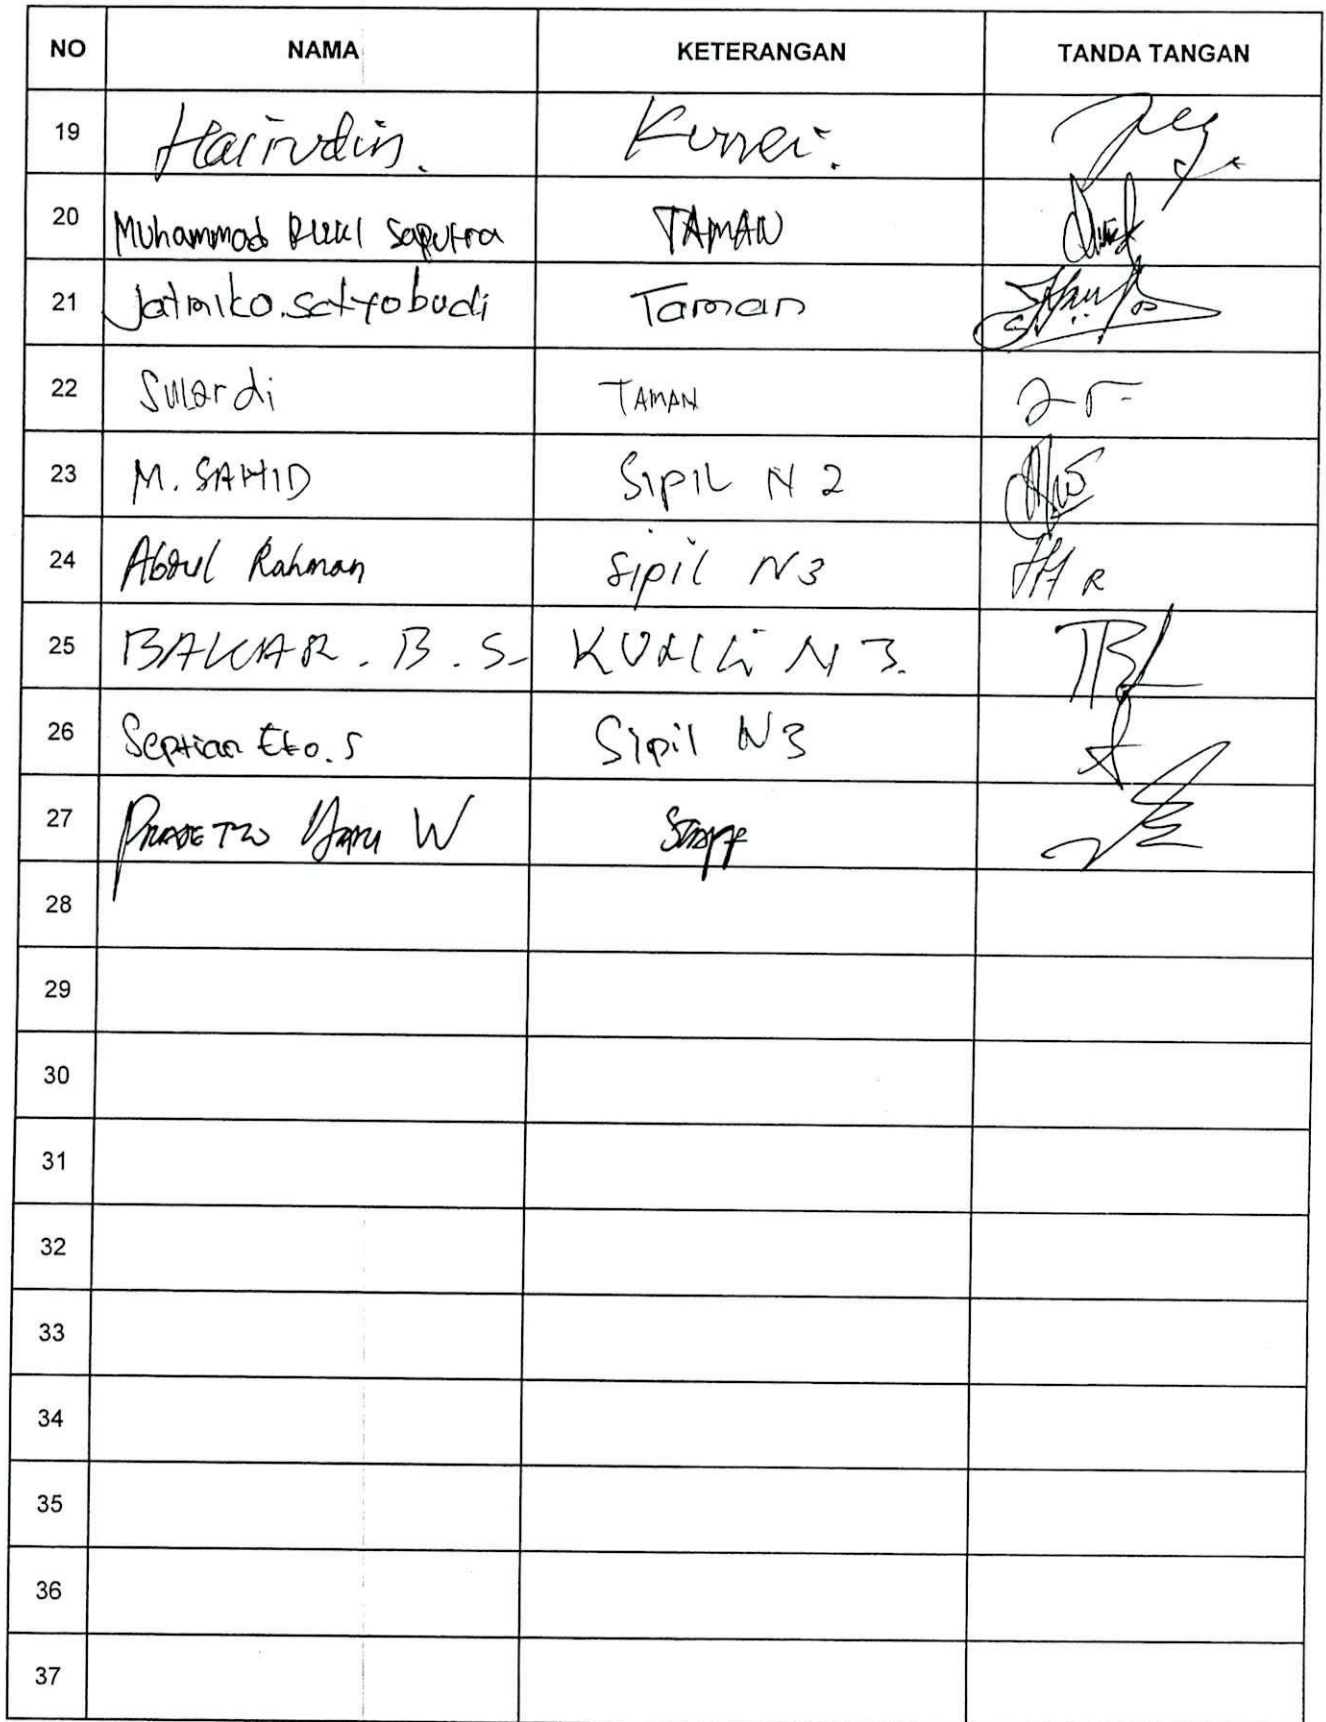 NO NAMA KETERANGAN TANDA TANGAN
19 Hairudin.
20 Muhammad Saputra TAMAN
21 Jatmiko.satyobudi Taman
22 Sulardi TAMAN
23 M. SAHID SIPIL N 2
24 Abdul Rahman Sipil N3
25 BAKAR. B. S. N 3.
26 Septian Eko.S Sipil N3
27 W Staff
28
29
30
31
32
33
34
35
36
37